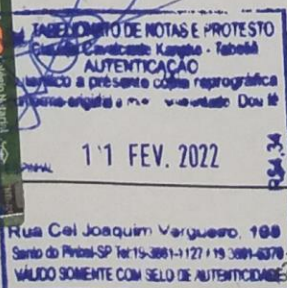 TABELIONATO DE NOTAS E PROTESTO
Cavalcante - Tabeliã
AUTENTICAÇÃO
a presente cópia reprográfica
original a me Dou fé
11 FEV. 2022
PINHAL
R$4,34
Rua Cel Joaquim Vergueiro, 198
Santo do Pinhal-SP Tel:19-3661-1127 / 19 3661-6370
VÁLIDO SOMENTE COM SELO DE AUTENTICIDADE